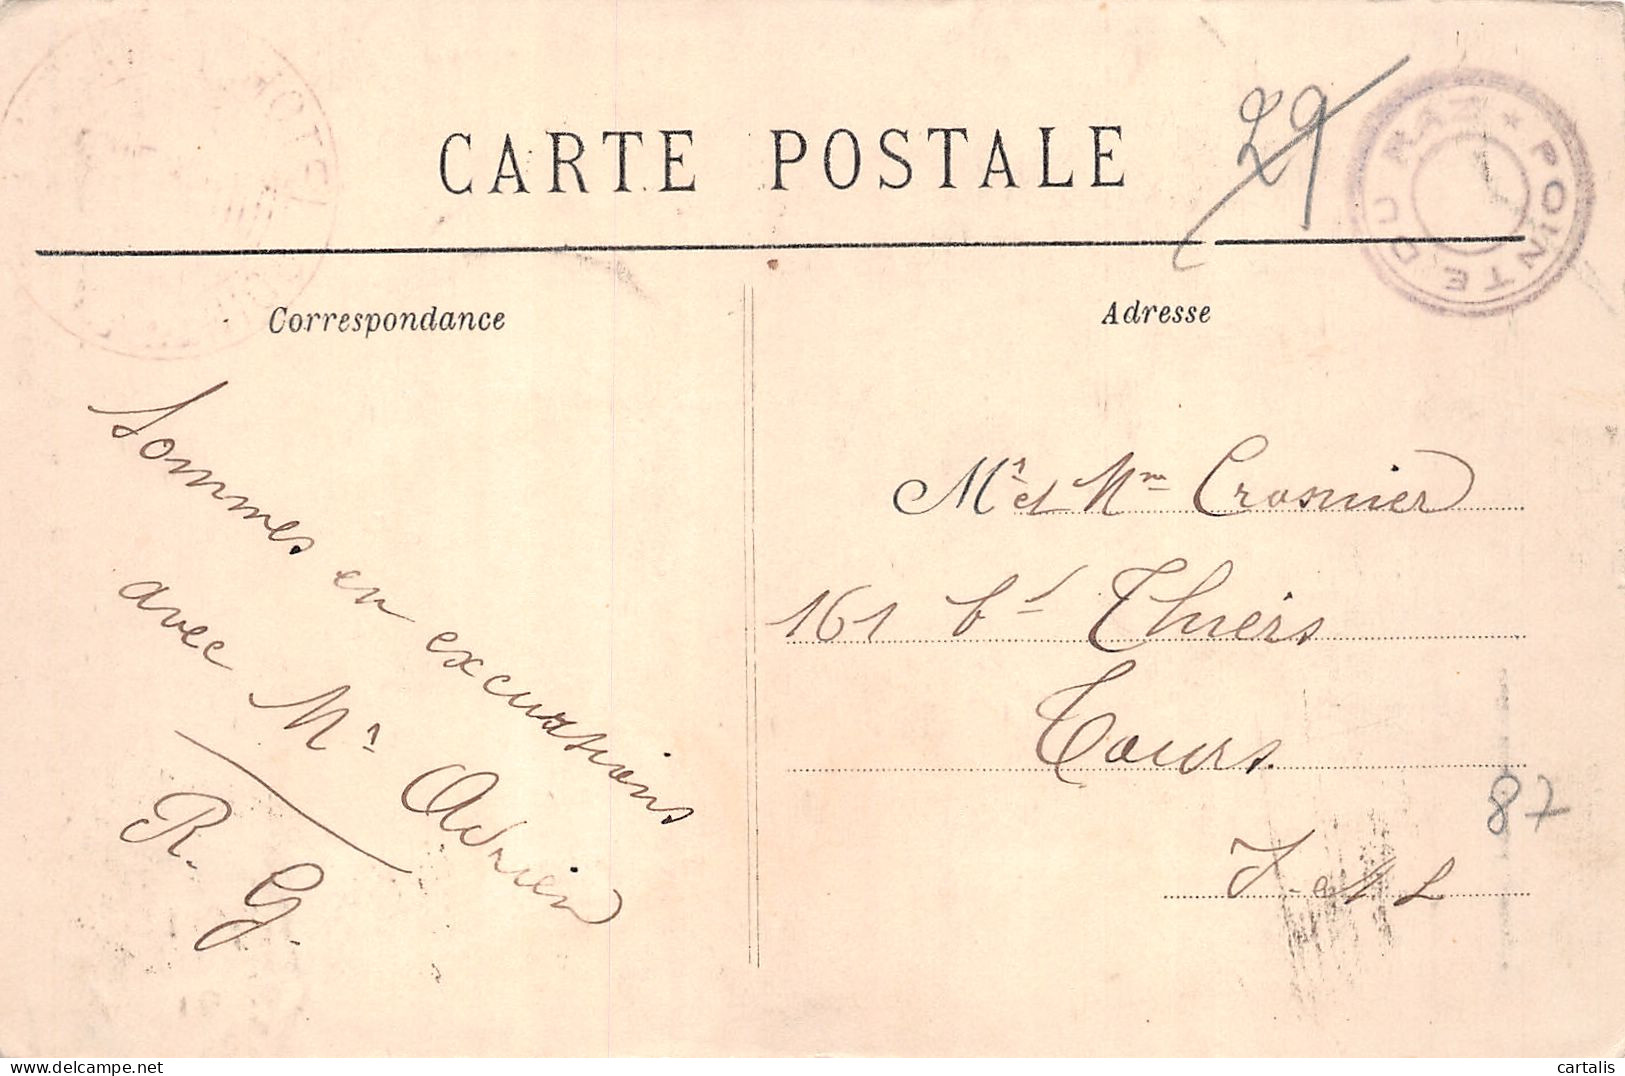 CARTE POSTALE
29
POINTE DU RAZ *
HOTEL
Correspondance
Adresse
Sommes en excursions
avec Mr Adrien
R. G.
Mr et Mme Crosnier
161 bd Thiers
Tours.
I-et L
87
cartalis